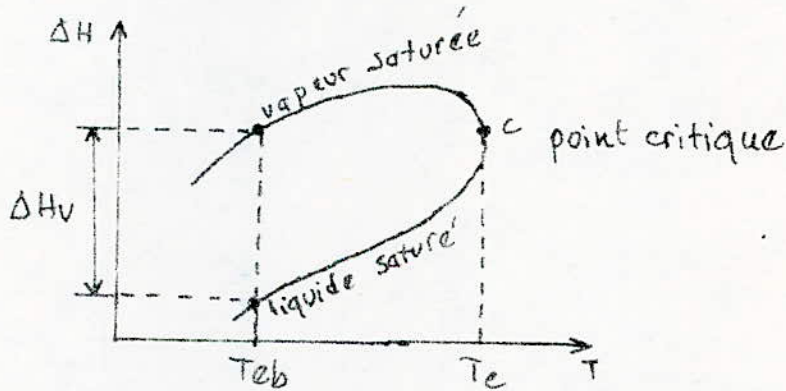 ΔH
vapeur saturée
C point critique
ΔHv
liquide saturé
Teb Tc T